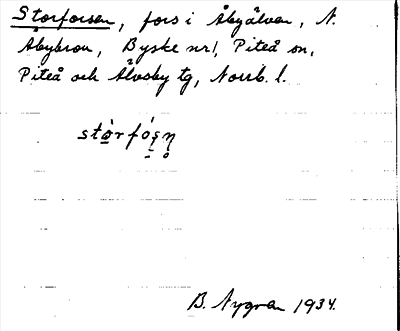 Storforsen, fors i Åbyälven, N.
Åbybron, Byske nr1, Piteå sn,
Piteå och Älvsby tg, Norrb. l.
stòrfósn
B. Nygren 1934.